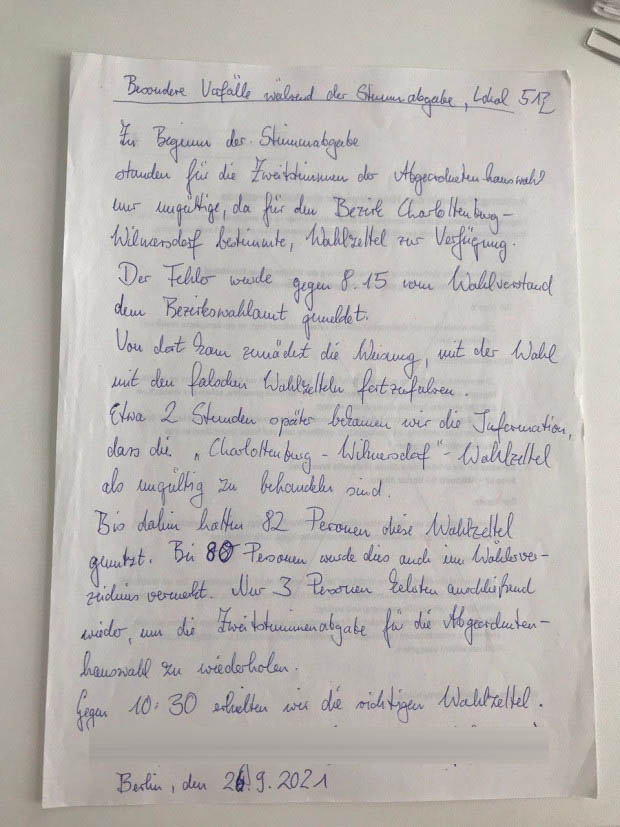 Besondere Vorfälle während der Stimmabgabe, Lokal 517
Zu Beginn der Stimmabgabe
standen für die Zweitstimmen der Abgeordnetenhauswahl
nur ungültige, da für den Bezirk Charlottenburg-
Wilmersdorf bestimmte, Wahlzettel zur Verfügung.
Der Fehler wurde gegen 8.15 vom Wahlvorstand
dem Bezirkswahlamt gemeldet.
Von dort kam zunächst die Weisung, mit der Wahl
mit den falschen Wahlzetteln fortzufahren.
Etwa 2 Stunden später bekamen wir die Information,
dass die „Charlottenburg - Wilmersdorf"-Wahlzettel
als ungültig zu behandeln sind.
Bis dahin hatten 82 Personen diese Wahlzettel
genutzt. Bei 80 Personen wurde dies auch im Wahlver-
zeichnis vermerkt. Nur 3 Personen kehrten anschließend
wieder, um die Zweitstimmenabgabe für die Abgeordneten-
hauswahl zu wiederholen.
Gegen 10:30 erhielten wir die richtigen Wahlzettel.
Berlin, den 26.9.2021